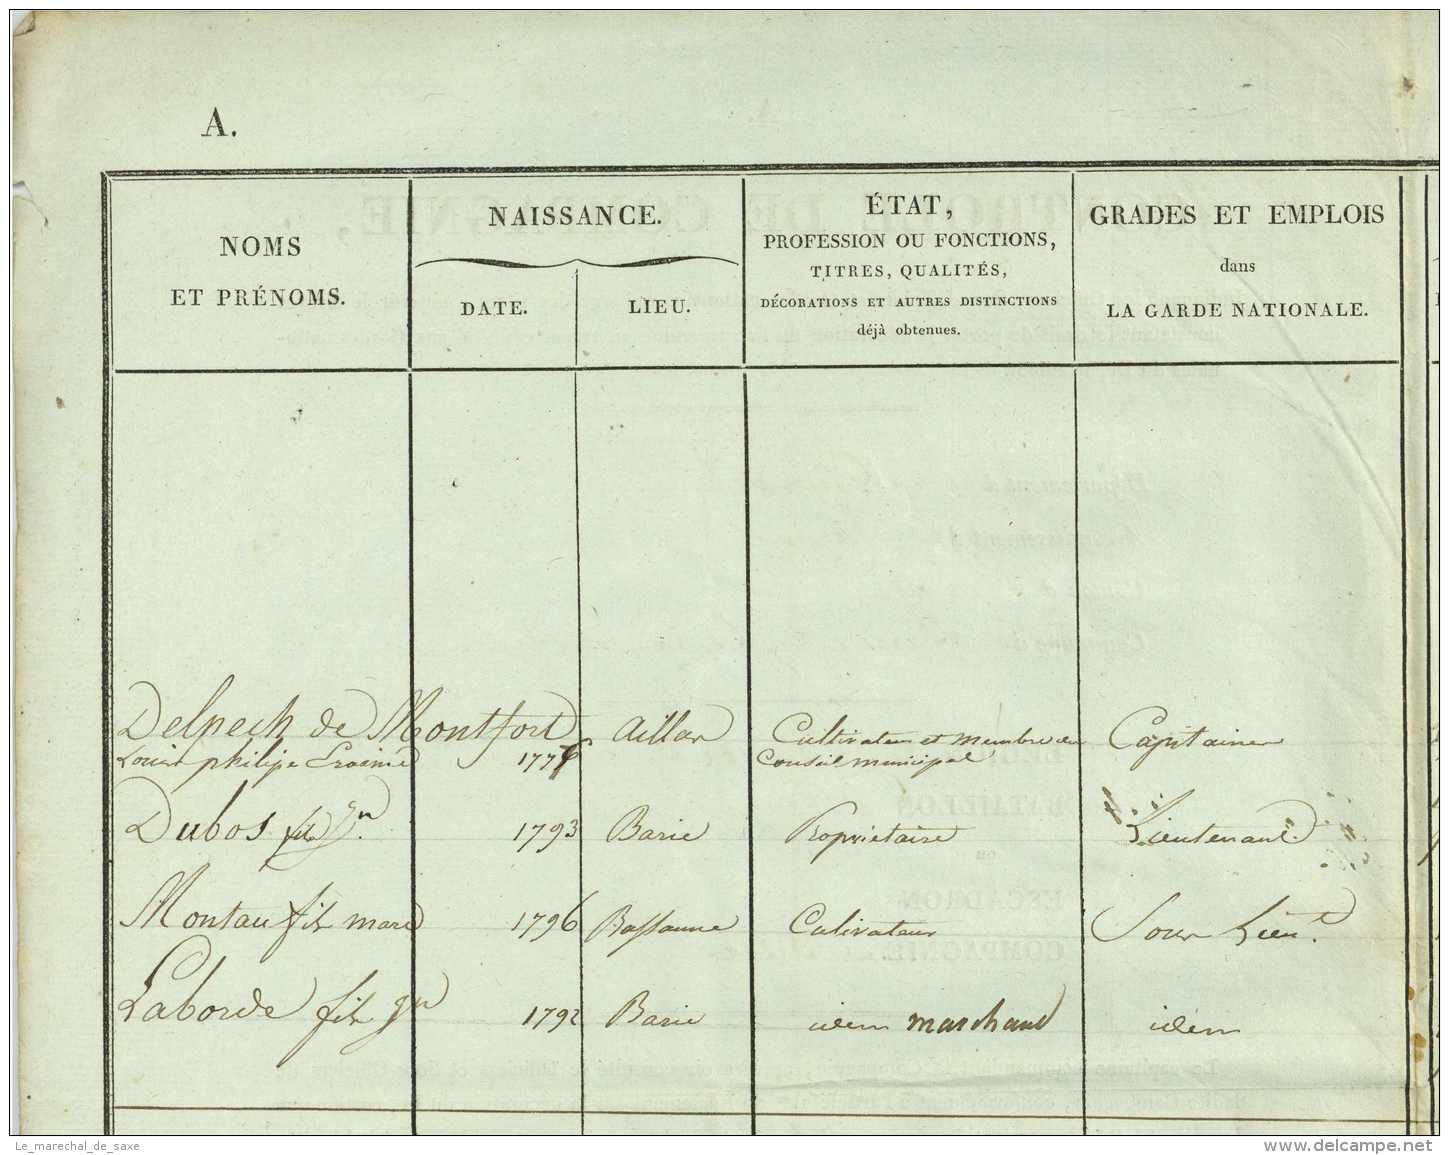 A.
NOMS
ET PRÉNOMS.
NAISSANCE.
DATE.
LIEU.
ÉTAT,
PROFESSION OU FONCTIONS,
TITRES, QUALITÉS,
DÉCORATIONS ET AUTRES DISTINCTIONS
déjà obtenues.
GRADES ET EMPLOIS
dans
LA GARDE NATIONALE.
Delpech de Montfort Aillas Cultivateur et membre du Capitaine
Louis philipe 1776 Conseil municipal
Dubos 1793 Barie Propriétaire Lieutenant.
Montau fils 1796 Bassanne Cultivateur Sous Lieut.
Laborde fils 1792 Barie idem marchand idem
Le_marechal_de_saxe
delcampe.net